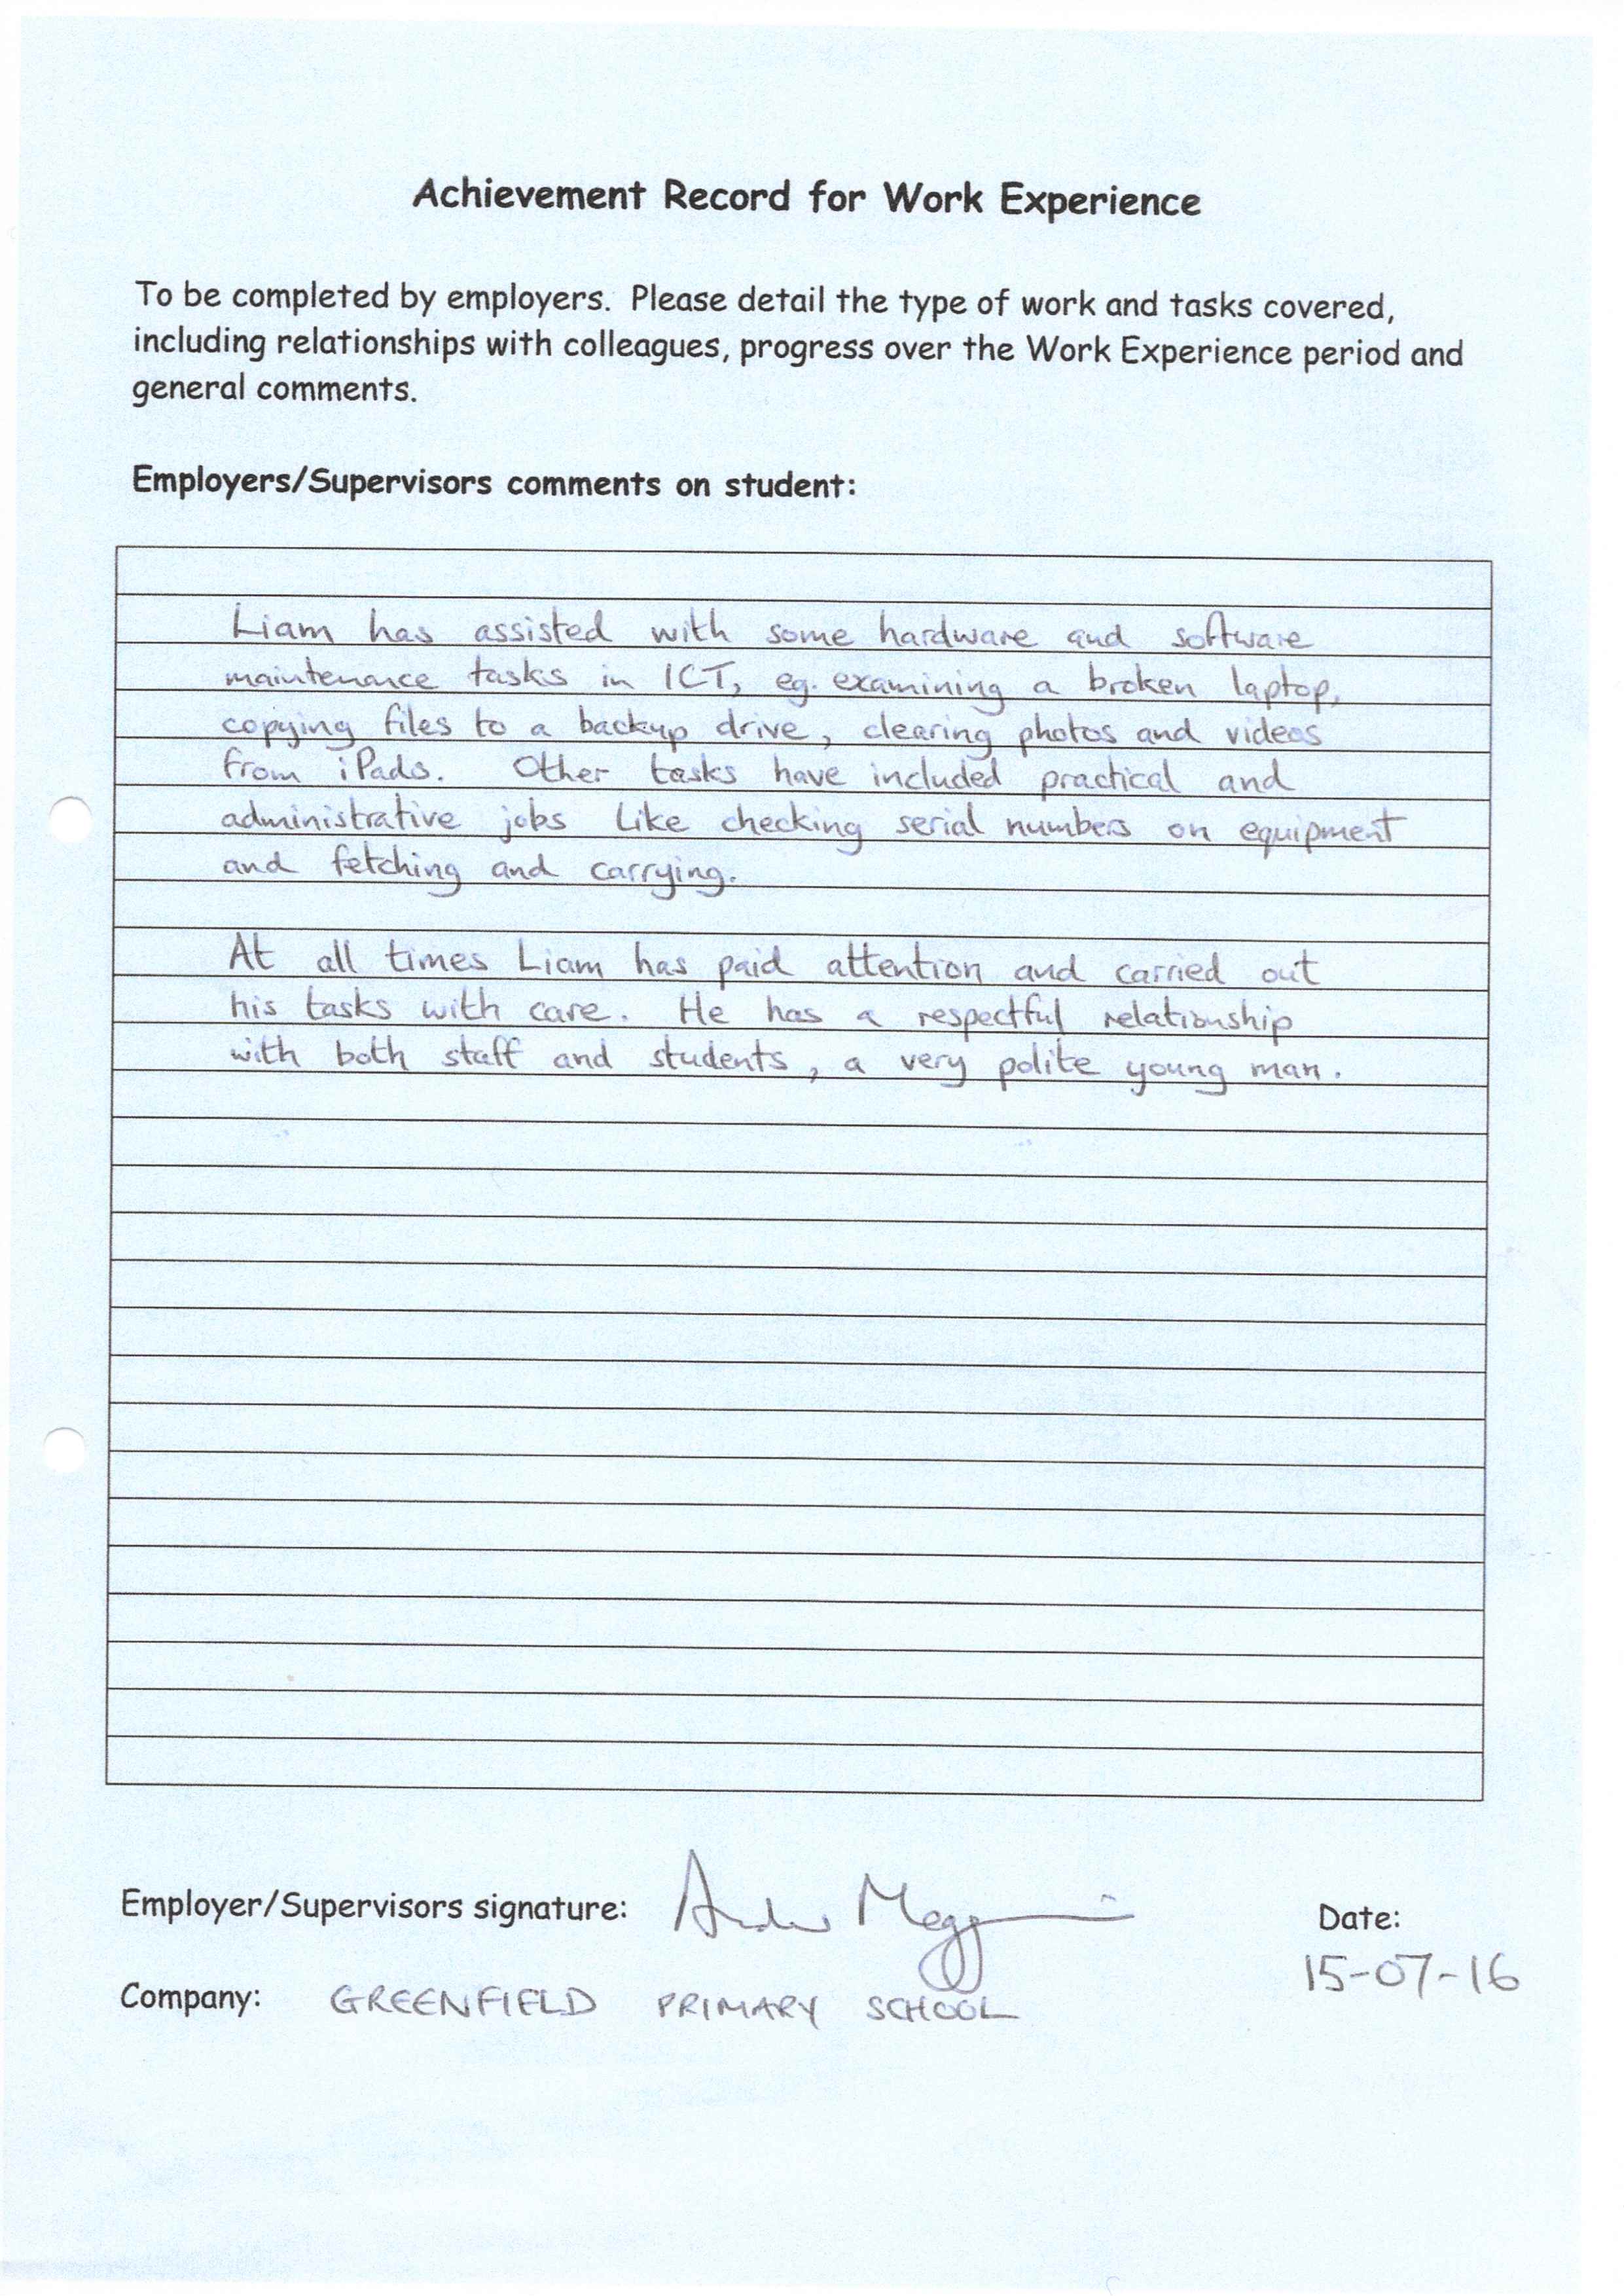 Achievement Record for Work Experience
To be completed by employers. Please detail the type of work and tasks covered,
including relationships with colleagues, progress over the Work Experience period and
general comments.
Employers/Supervisors comments on student:
Liam has assisted with some hardware and software
maintenance tasks in ICT, eg. examining a broken laptop,
copying files to a backup drive, clearing photos and videos
from iPads. Other tasks have included practical and
administrative jobs like checking serial numbers on equipment
and fetching and carrying.
At all times Liam has paid attention and carried out
his tasks with care. He has a respectful relationship
with both staff and students, a very polite young man.
Employer/Supervisors signature:
Date:
15-07-16
Company: GREENFIELD PRIMARY SCHOOL